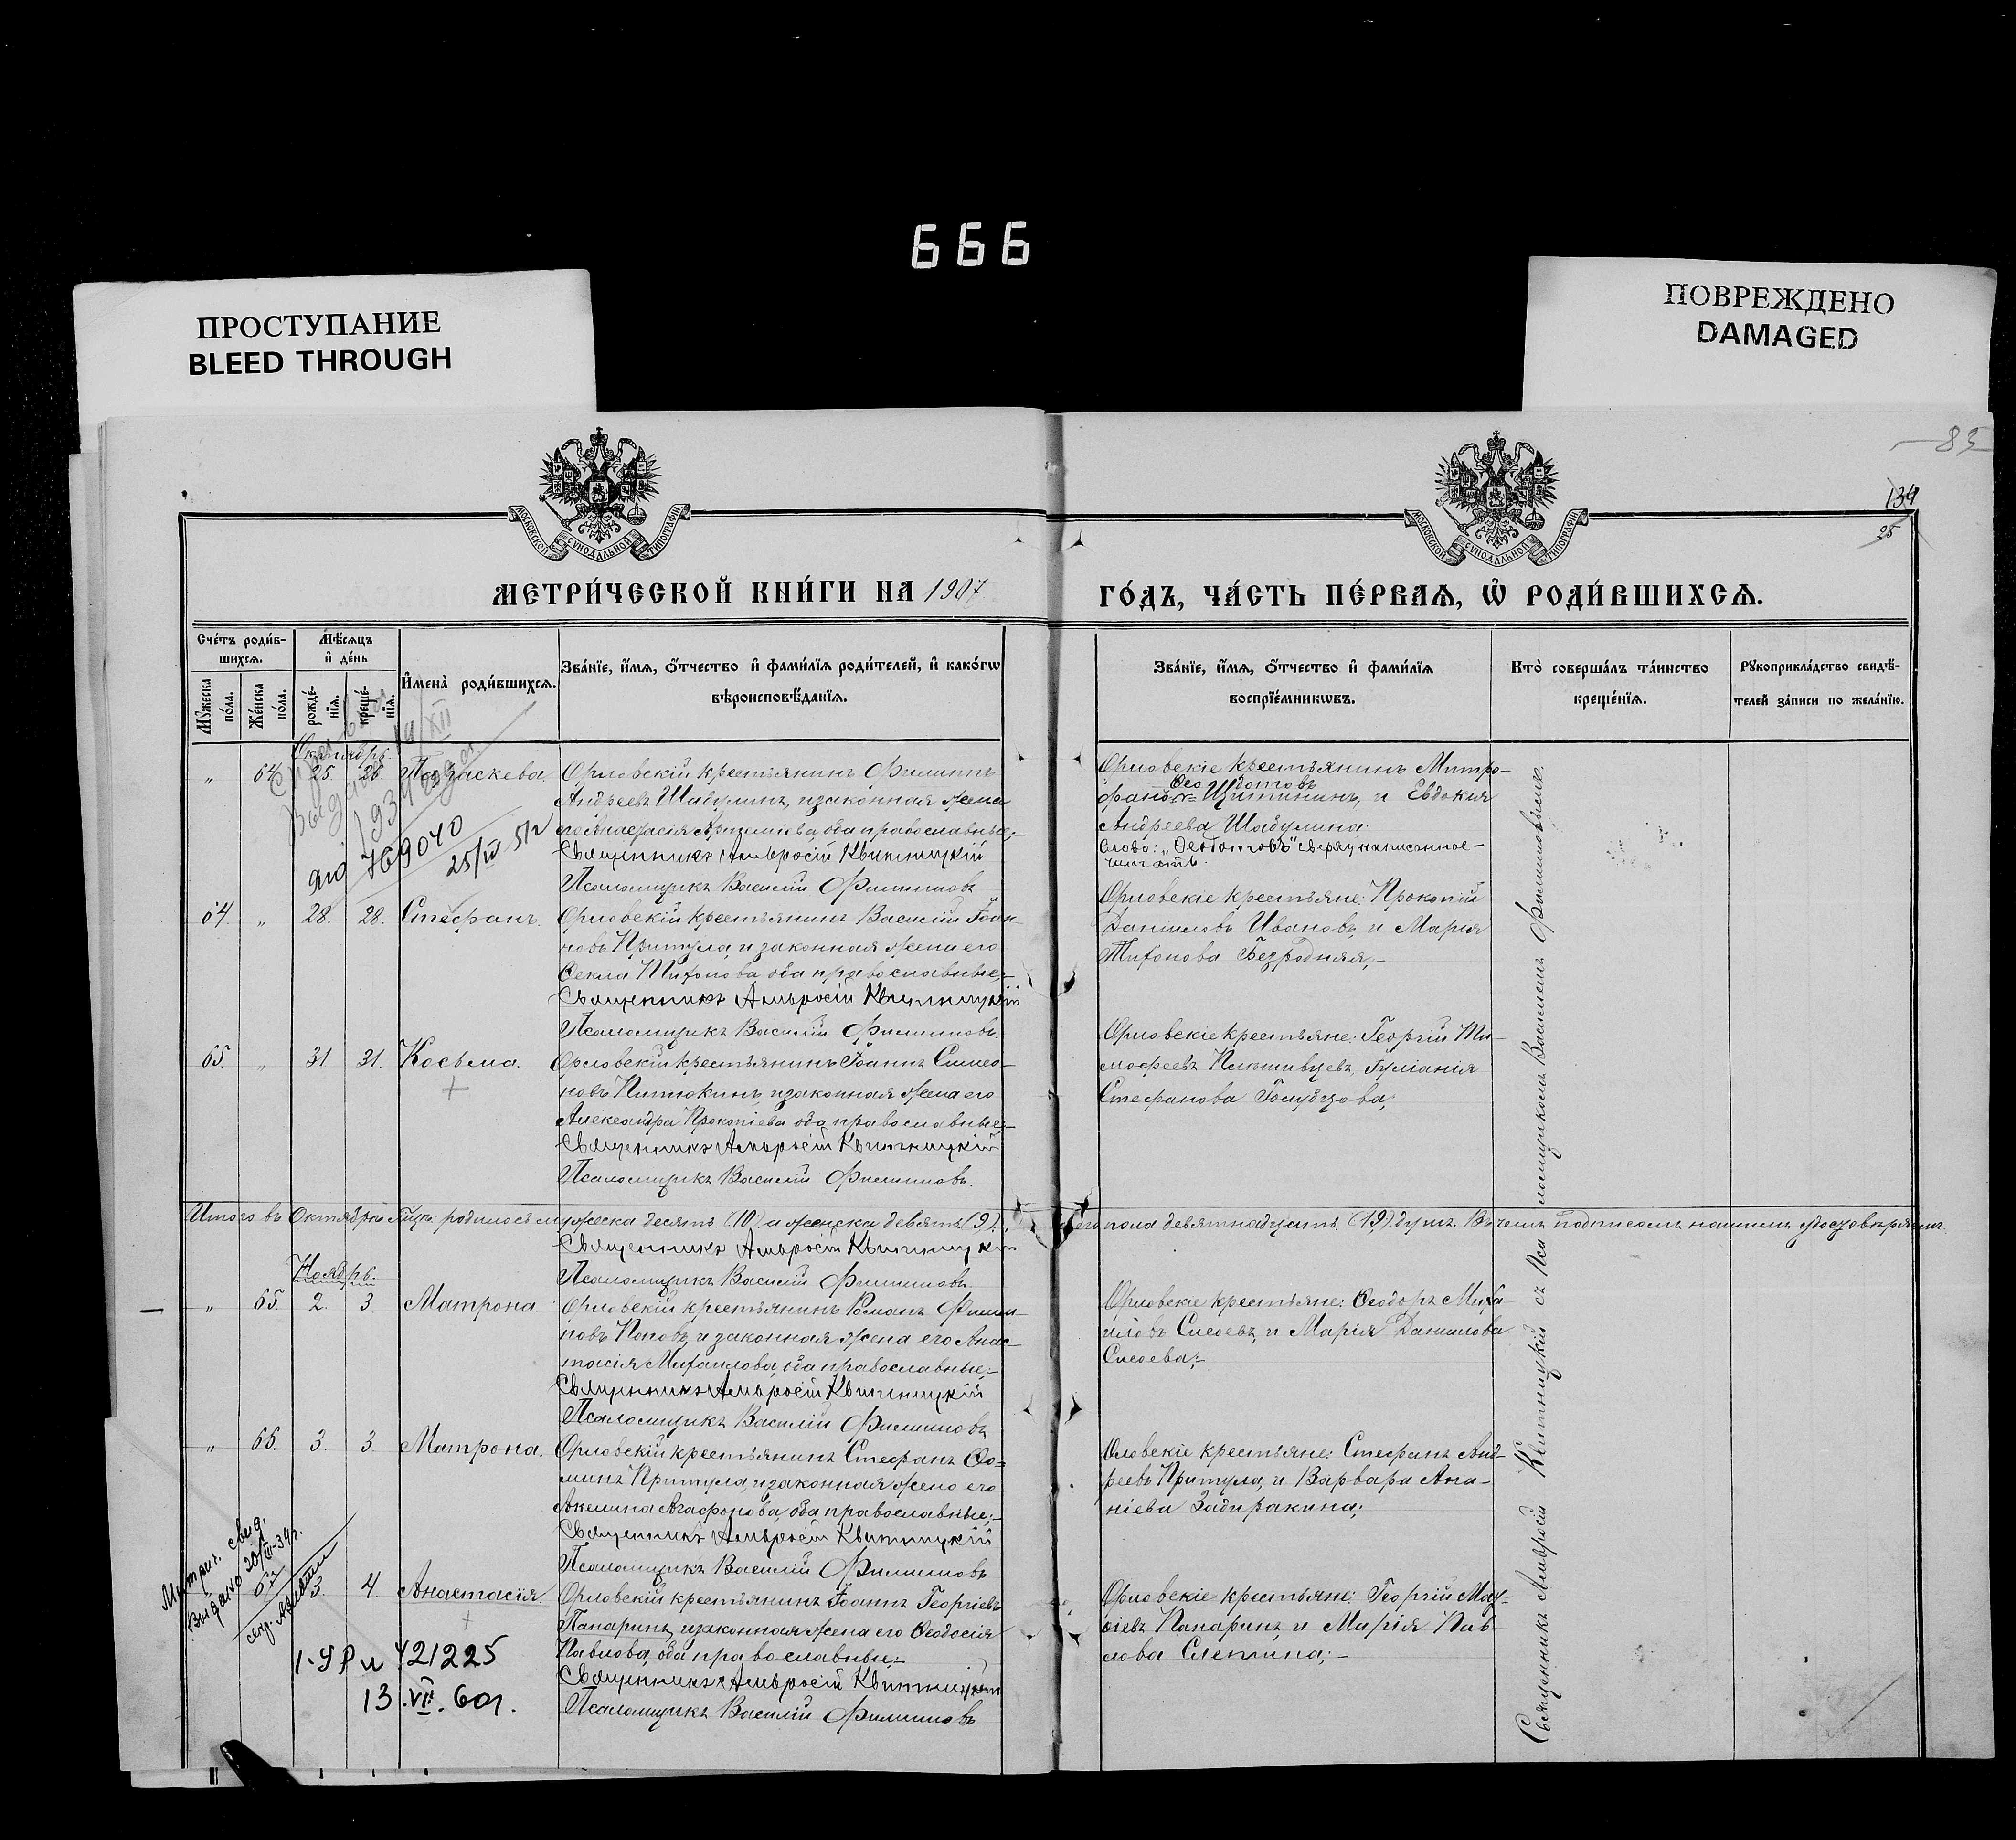 666
ПРОСТУПАНИЕ
BLEED THROUGH
ПОВРЕЖДЕНО
DAMAGED
83
134
25
МОСКОВСКОЙ СѴНОДАЛЬНОЙ ТИПОГРАФІИ
МОСКОВСКОЙ СѴНОДАЛЬНОЙ ТИПОГРАФІИ
МЕТРИ́ЧЕСКОЙ КНИ́ГИ НА 1907
ГО́ДЪ, ЧА́СТЬ ПЕ́РВАѦ, Ѡ҆ РОДИ́ВШИХСѦ.
Сче́тъ роди́в-
шихсѧ.
Мѣ́сѧцъ
и҆ де́нь
Мꙋжеска по́ла.
Же́нска по́ла.
рожде́-
нїѧ.
креще́-
нїѧ.
И҆мена̀ роди́вшихсѧ.
Зва́нїе, и҆́мѧ, ѻ҆́тчество и҆ фами́лїѧ роди́телей, и҆ како́гѡ
вѣроисповѣ́данїѧ.
Зва́нїе, и҆́мѧ, ѻ҆́тчество и҆ фами́лїѧ
воспрїе́мникѡвъ.
Кто̀ соверша́лъ та́инство
креще́нїѧ.
Рꙋкоприкла́дство свидѣ́-
телей за́писи по жела́нїю.
Октябрь.
„ 64 25. 26. Параскева
Орловскій крестьянинъ Филиппъ
Андреевъ Шабулинъ, и законная жена
его Анастасія Артеміева, оба православные;-
Священникъ Амвросій Квитницкій
Псаломщикъ Василій Филиповъ
Орловскіе крестьянинъ Митро-
фанъ
Ѳеодотовъ
и Евдокія
Андреева Шабулина.
Слово: „Ѳеодотовъ" сверху написанное -
читать.
769040
25/IV 51г
64. „ 28. 28. Стефанъ.
Орловскій крестьянинъ Василій Іоан-
новъ Притула, и законная жена его
Ѳекла Тихонова оба православные;-
Священникъ Амвросій Квитницкій
Псаломщикъ Василій Филиповъ.
Орловскіе крестьяне: Прокопій
Даниловъ Ивановъ, и Марія
Тихонова Безродняя;-
65. „ 31 31. Косьма.
Орловскій крестьянинъ Іоаннъ Симео-
новъ Питюкинъ, и законная жена его
Александра Прокопіева оба православные;-
Священникъ Амвросій Квитницкій
Псаломщикъ Василій Филиповъ.
Орловскіе крестьяне: Георгій Ти-
мофеевъ Плешивцевъ, Іуліанія
Стефанова Голубцова;
Итого въ Октябрѣ м̃цѣ родилось мужеска десять (10) а женска девять (9).,
пола девятнадцать (19) душъ. Въ чемъ подписомъ нашимъ удостовѣряемъ.
Священникъ Амвросій Квитницкій
Псаломщикъ Василій Филиповъ.
Ноябрь.
„ 65. 2. 3. Матрона.
Орловскій крестьянинъ Романъ Филип-
повъ Поповъ, и законная жена его Анас-
тасія Михаилова, оба православные;-
Священникъ Амвросій Квитницкій
Псаломщикъ Василій Филиповъ
Орловскіе крестьяне: Ѳеодоръ Миха-
иловъ Сысоевъ, и Марія Данилова
Сысоева;-
„ 66. 3. 3. Матрона.
Орловскій крестьянинъ Стефанъ Ѳо-
минъ Притула, и законная жена его
Акелина Агафонова, оба православные;-
Священникъ Амвросій Квитницкій
Псаломщикъ Василій Филиповъ
Орловскіе крестьяне: Стефанъ Анд-
реевъ Притула, и Варвара Ана-
ніева Задиракина;
Метрич. свид.
Выдано 20/III-39г.
67 3. 4. Анастасія
Орловскій крестьянинъ Іоаннъ Георгіевъ
Панаринъ, и законная жена его Ѳеодосія
Павлова, оба православные;-
Священникъ Амвросій Квитницкій
Псаломщикъ Василій Филиповъ
Орловскіе крестьяне: Георгій Моѵ-
сіевъ Панаринъ, и Марія Пав-
лова Слепина;-
421225
13.VII.60г.
Священникъ Амвросій Квитницкій съ Псаломщикомъ Василіемъ Филиповымъ.